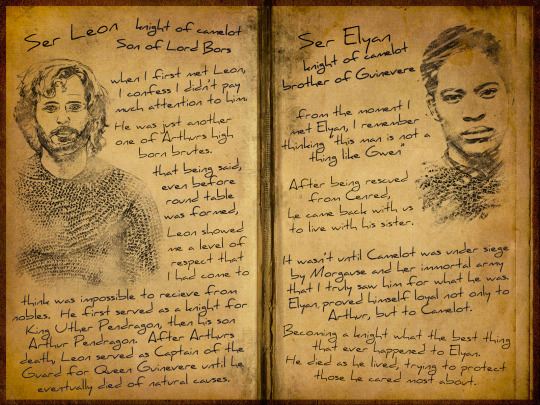 Ser Leon knight of camelot
Son of Lord Bors
when I first met Leon,
I confess I didn't pay
much attention to him.
He was just another
one of Arthurs high
born brutes.
that being said,
even before
round table
was formed,
Leon showed
me a level of
respect that
I had come to
think was impossible to recieve from
nobles. He first served as a knight for
King Uther Pendragon, then his son
Arthur Pendragon. After Arthurs
death, Leon served as Captain of the
Guard for Queen Guinevere until he
eventually died of natural causes.
Ser Elyan
knight of camelot
brother of Guinevere
from the moment I
met Elyan, I remember
thinking "this man is not a
thing like Gwen"
After being rescued
from Cenred,
he came back with us
to live with his sister.
It wasn't until Camelot was under siege
by Morgause and her immortal army
that I truly saw him for what he was.
Elyan, proved himself loyal not only to
Arthur, but to Camelot.
Becoming a knight what the best thing
that ever happened to Elyan.
He died as he lived, trying to protect
those he cared most about.